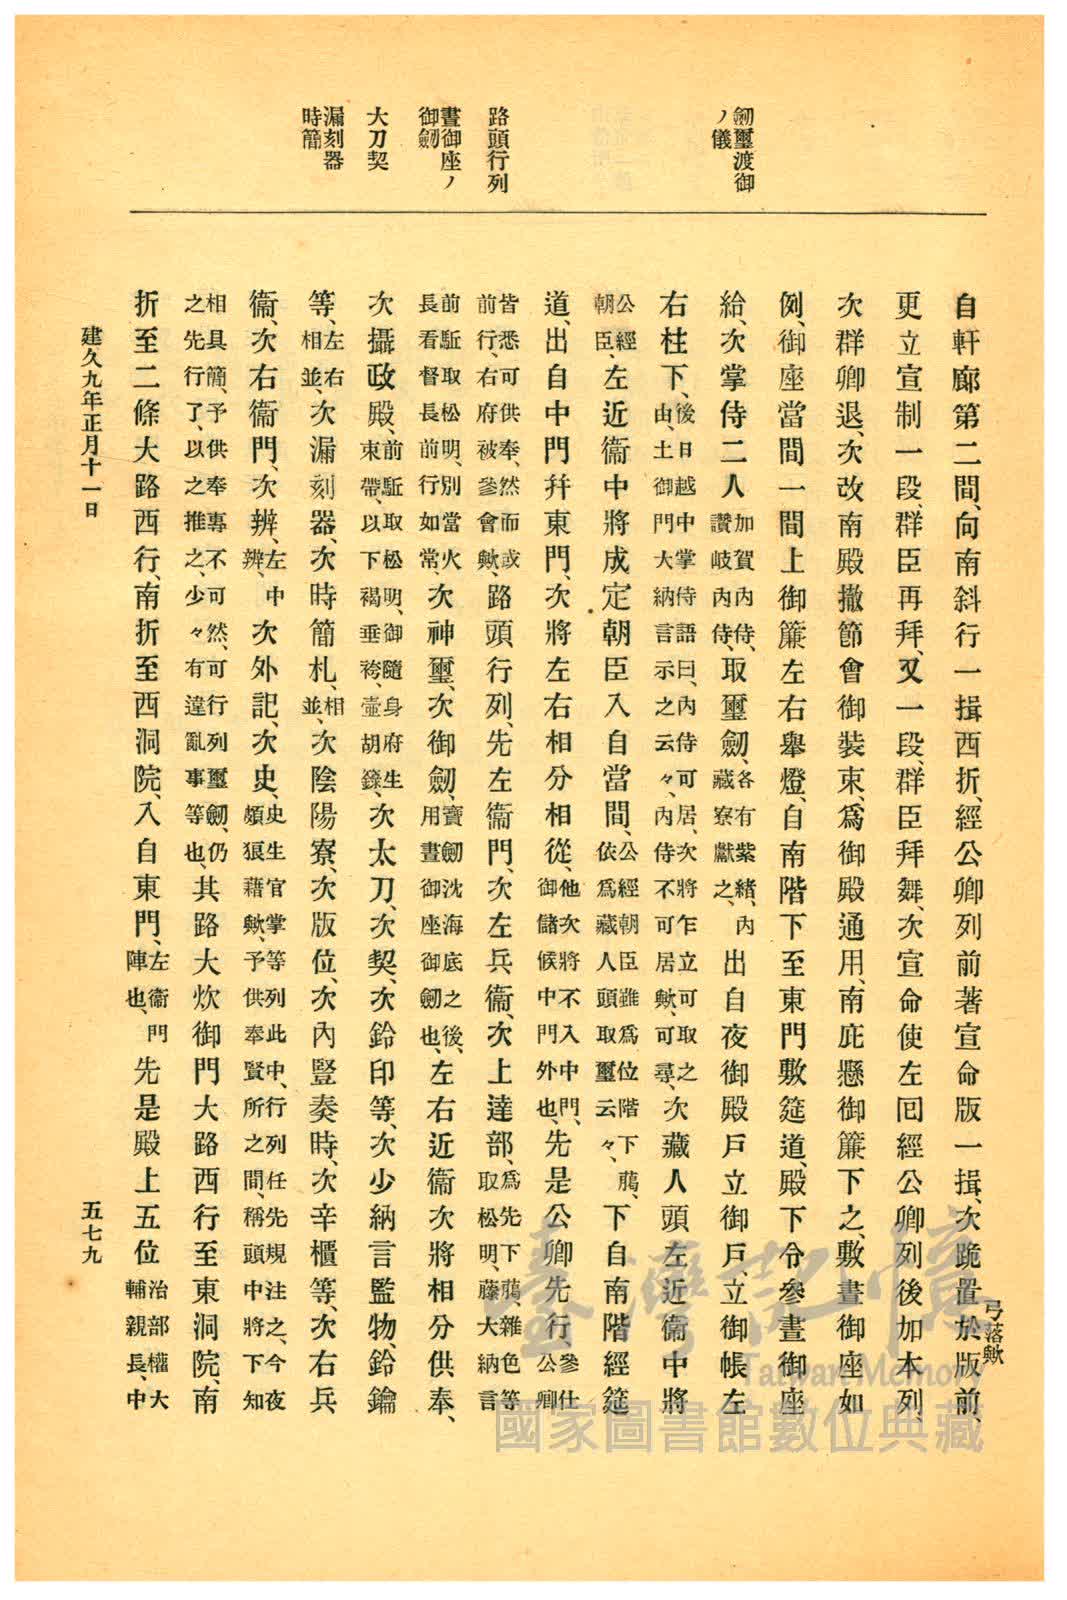 劒璽渡御
ノ儀
路頭行列
晝御座ノ
御劒
大刀契
漏刻器
時簡
自軒廊第二間、向南斜行一揖西折、經公卿列前著宣命版一揖、次跪置於版前、
弓落歟
更立宣制一段、群臣再拜、又一段、群臣拜舞、次宣命使左囘經公卿列後加本列、
次群卿退、次改南殿撤節會御裝束、爲御殿通用、南庇懸御簾下之、敷晝御座如
例、御座當間一間上御簾左右舉燈、自南階下至東門敷筵道、殿下令參晝御座
給、次掌侍二人加賀內侍、讚岐內侍、取璽劒、各有紫緒、內藏寮獻之、出自夜御殿戶立御戶、立御帳左
右柱下、後日越中掌侍語曰、內侍可居、次將乍立可取之由、土御門大納言示之云々、內侍不可居歟、可尋、次藏人頭左近衞中將
公經朝臣、左近衞中將成定朝臣入自當間、公經朝臣雖爲位階下﨟、依爲藏人頭取璽云々、下自南階經筵
道、出自中門幷東門、次將左右相分相從、他次將不入中門、御儲候中門外也、先是公卿先行參仕公卿
皆悉可供奉、然而或前行、右府被參會歟、路頭行列、先左衞門、次左兵衞、次上達部、爲先下﨟、雜色等取松明、藤大納言
前駈取松明、別當火長看督長前行如常、次神璽、次御劒、寶劒沈海底之後、用晝御座御劒也、左右近衞次將相分供奉、
次攝政殿、前駈取松明、御隨身府生束帶、以下褐垂袴、壺胡籙、次太刀、次契、次鈴印等、次少納言監物、鈴鑰
等、左右相並、次漏刻器、次時簡札、相並、次陰陽寮、次版位、次內豎奏時、次辛櫃等、次右兵
衞、次右衞門、次辨、左中辨、次外記、次史、史生官掌等列此中、行列任先規注之、今夜頗狼藉歟、予供奉賢所之間、稱頭中將下知
相具簡、予供奉專不可然、可行列璽劒、仍之先行了、以之推之、少々有違亂事等也、其路大炊御門大路西行至東洞院、南
折至二條大路西行、南折至西洞院、入自東門、左衞門陣也、先是殿上五位治部權大輔親長、中
建久九年正月十一日
五七九
臺灣記憶
Taiwan Memory
國家圖書館數位典藏